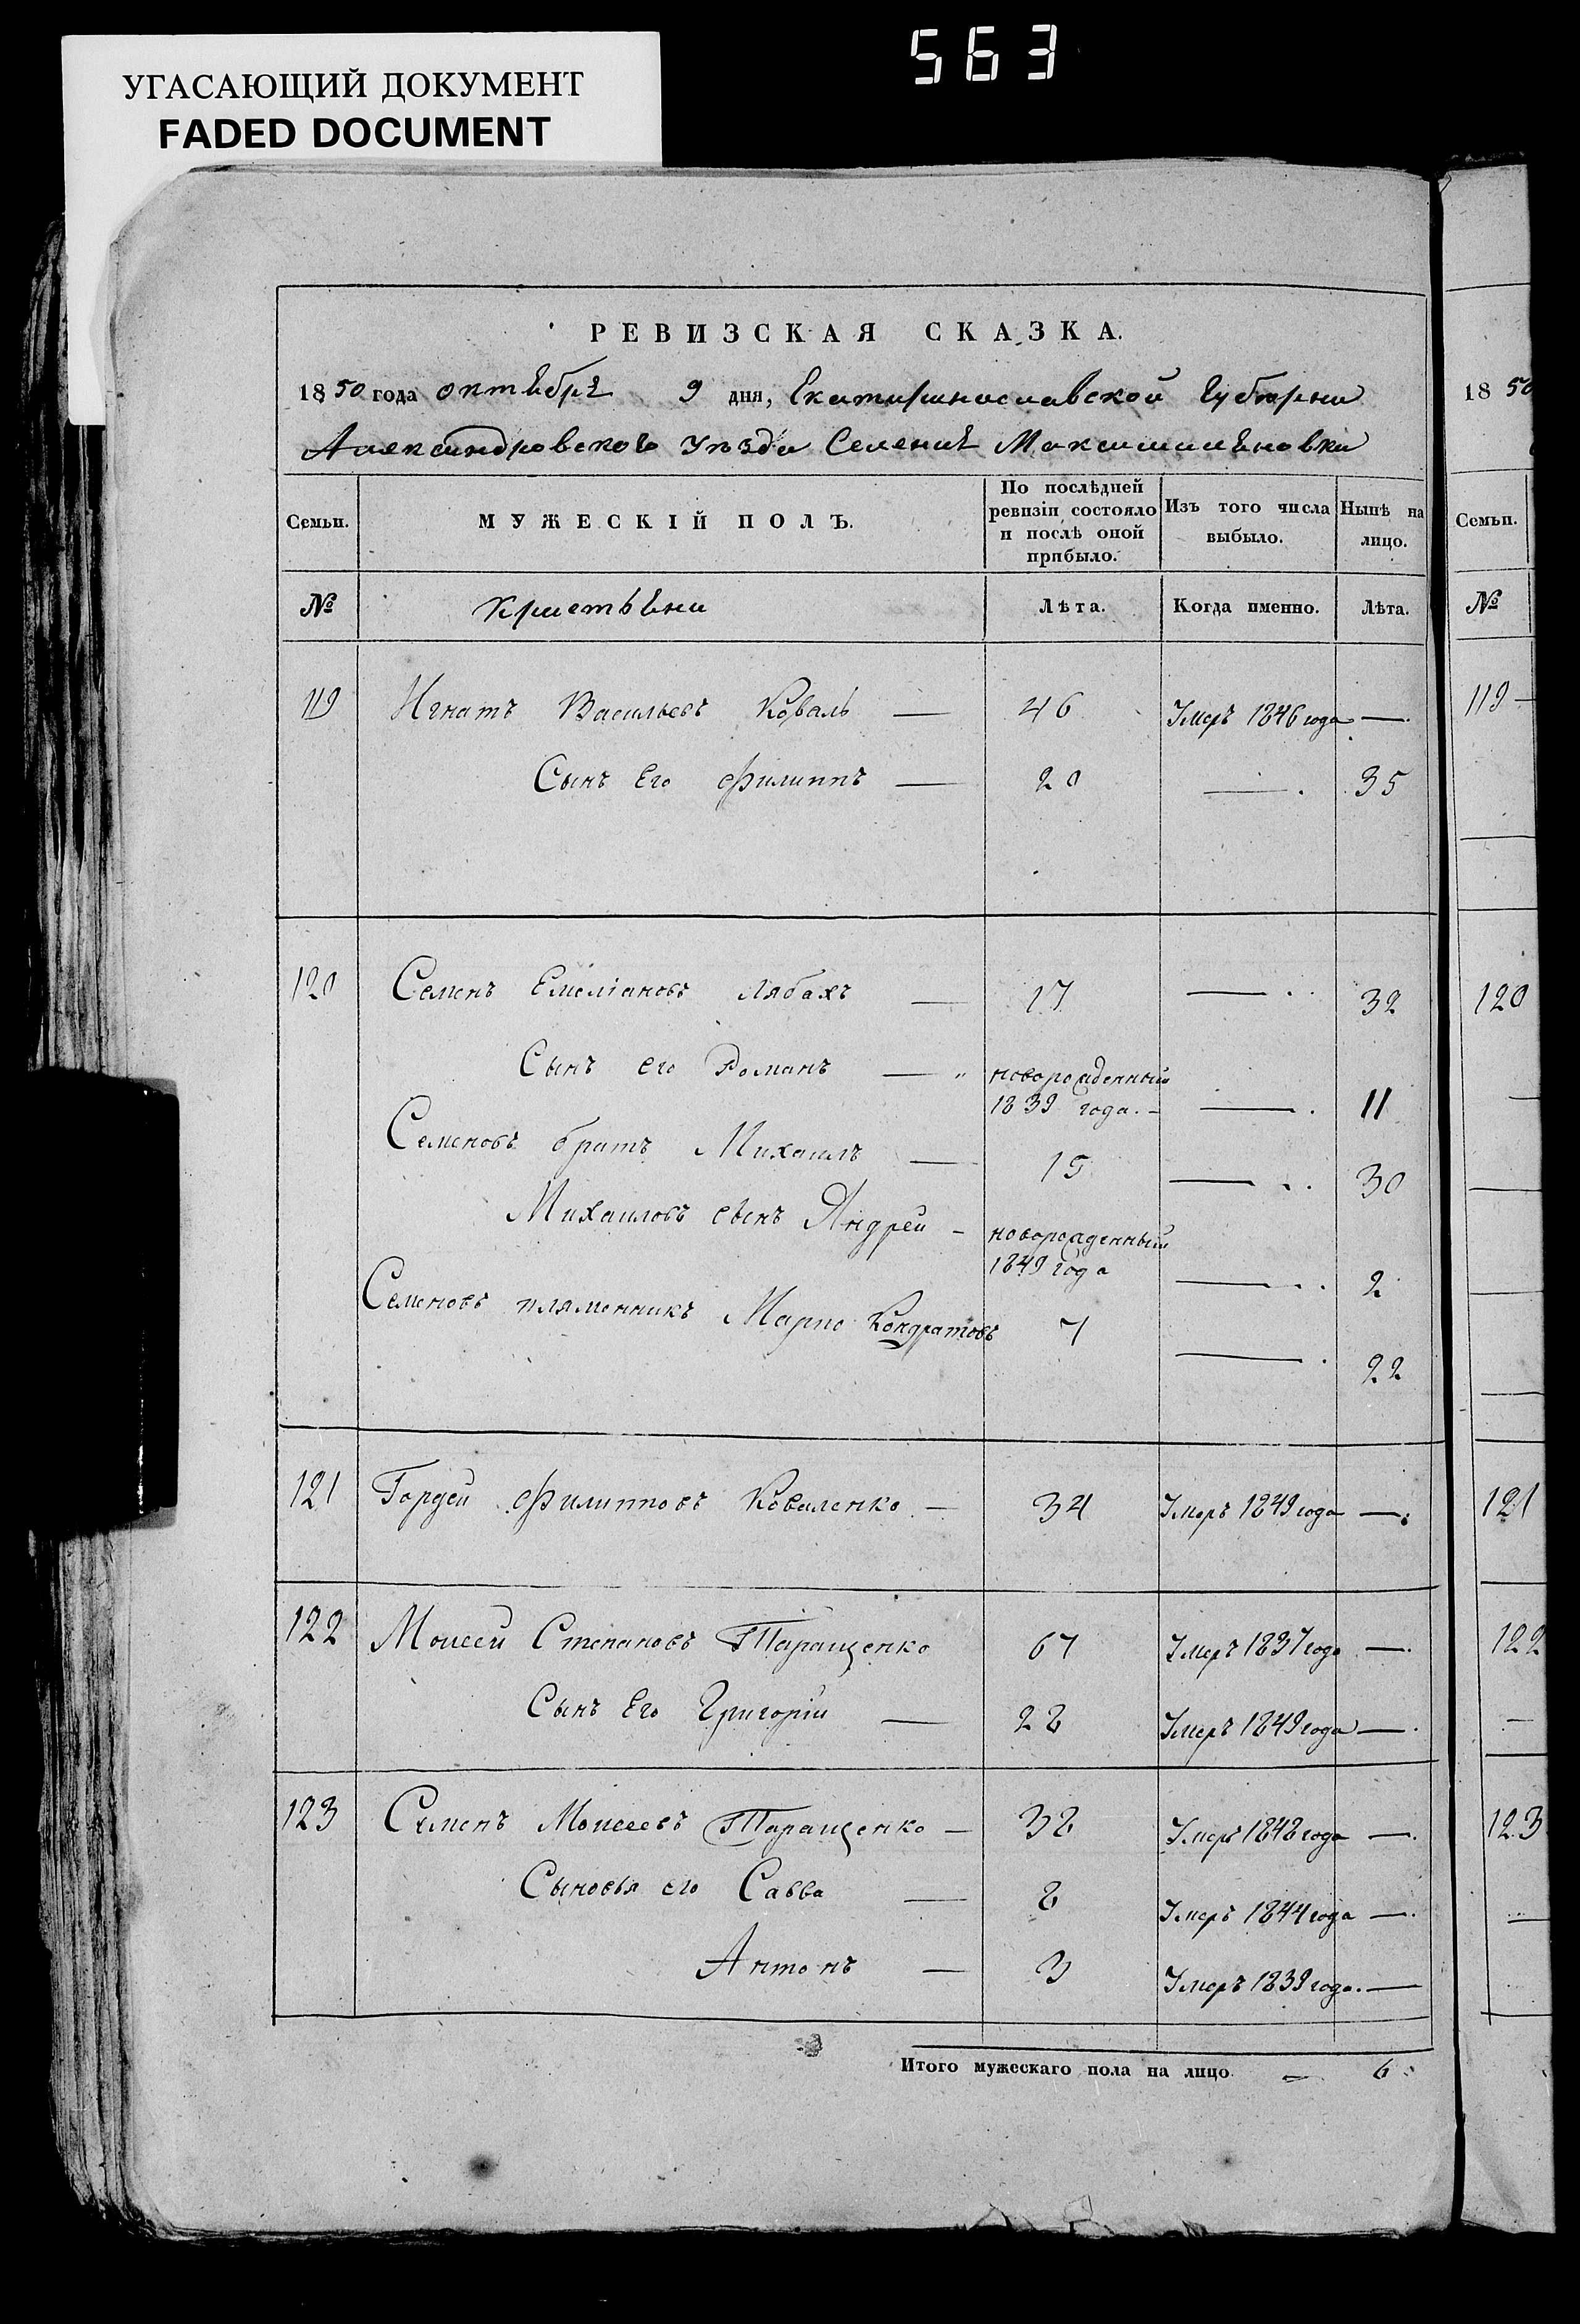 563
УГАСАЮЩИЙ ДОКУМЕНТ
FADED DOCUMENT
РЕВИЗСКАЯ СКАЗКА.
1850 года октября 9 дня, Екатеринославской Губерни
Александровского Уезда Селения Максимильяновки
Семьи. МУЖЕСКІЙ ПОЛЪ. По послѣдней ревизіи состояло и послѣ оной прибыло. Изъ того числа выбыло. Нынѣ на лицо.
№ Крестьяни Лѣта. Когда именно. Лѣта.
119 Игнатъ Васильевъ Коваль — 46 Умеръ 1846 года —
Сынъ Его Филиппъ — 20 — 35
120 Семенъ Емеліановъ Лябахъ — 17 — 32
Сынъ его Романъ — новорожденный 1839 года. — 11
Семеновъ братъ Михаилъ — 15 — 30
Михаиловъ сынъ Андрей — новорожденный 1849 года — 2
Семеновъ пляменникъ Марко Кондратовъ 7 — 22
121 Гордей Филипповъ Коваленко — 34 Умеръ 1849 года —
122 Моисей Степановъ Таращенко 67 Умеръ 1837 года —
Сынъ Его Григорій — 28 Умеръ 1849 года —
123 Семенъ Моисеевъ Таращенко — 38 Умеръ 1848 года —
Сыновья его Савва — 8 Умеръ 1844 года —
Антонъ — 3 Умеръ 1839 года. —
Итого мужескаго пола на лицо — 6
1850
Семьи.
№
119 —
120
121
122
123